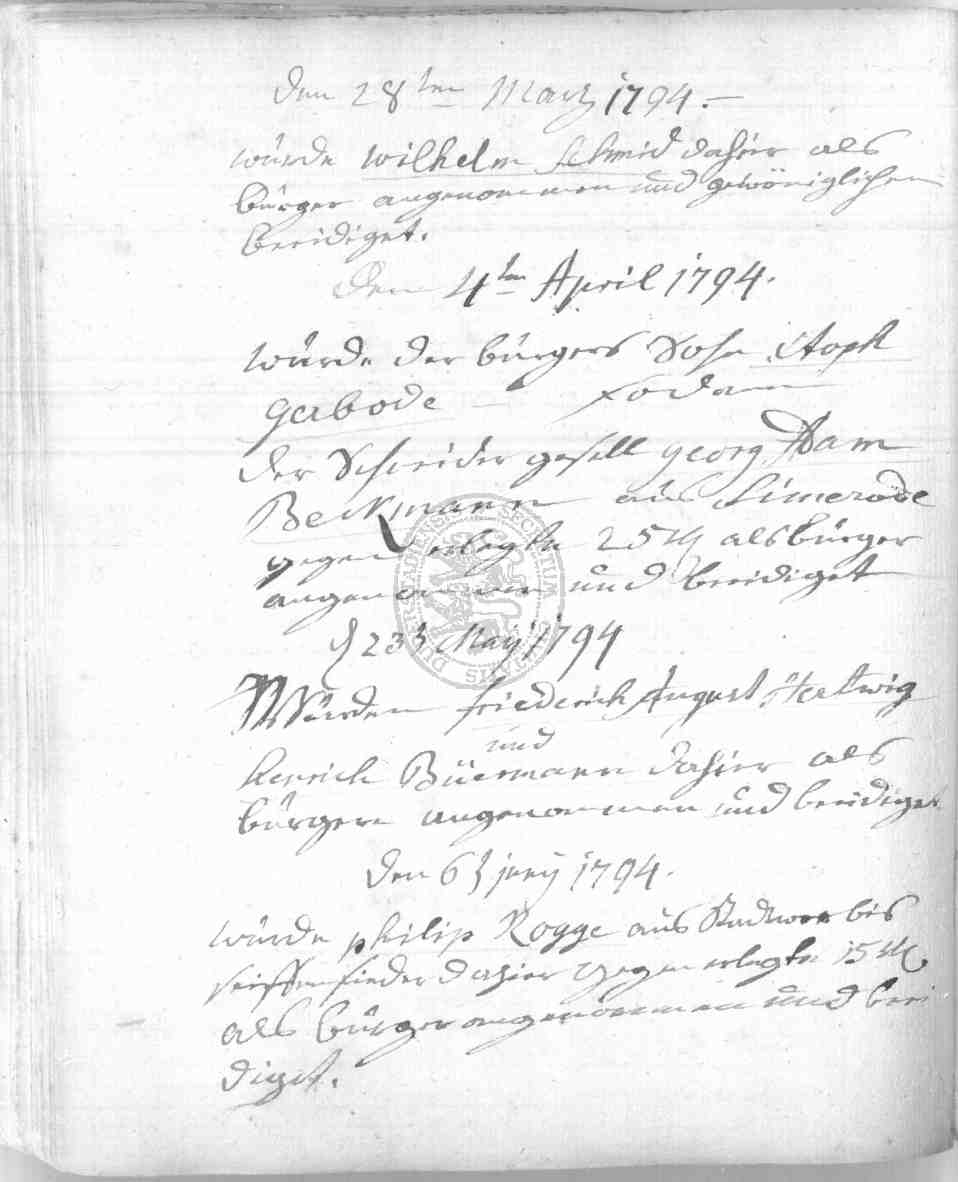 Den 28ten Martz 1794.
wurde Wilhelm Schmid dahier als
bürger angenommen und gewöniglichen
beeidiget.
Den 4ten April 1794.
wurde der bürgers Sohn Stoph
Gerbode fodann
der Schneider gesell Georg Adam
Beckmann aus Limerode
gegen erlegte 25 als bürger
angenommen und beeidiget
d 23t May 1794
Wurden Friederich August Hertwig
und
Henrich Büermann dahier als
bürgern angenommen und beeidiget
Den 6t juny 1794.
wurde philip Rogge aus Stadtworbis
seiffensieder dahier gegen erlegte 15
als bürger angenommen und beei
diget.